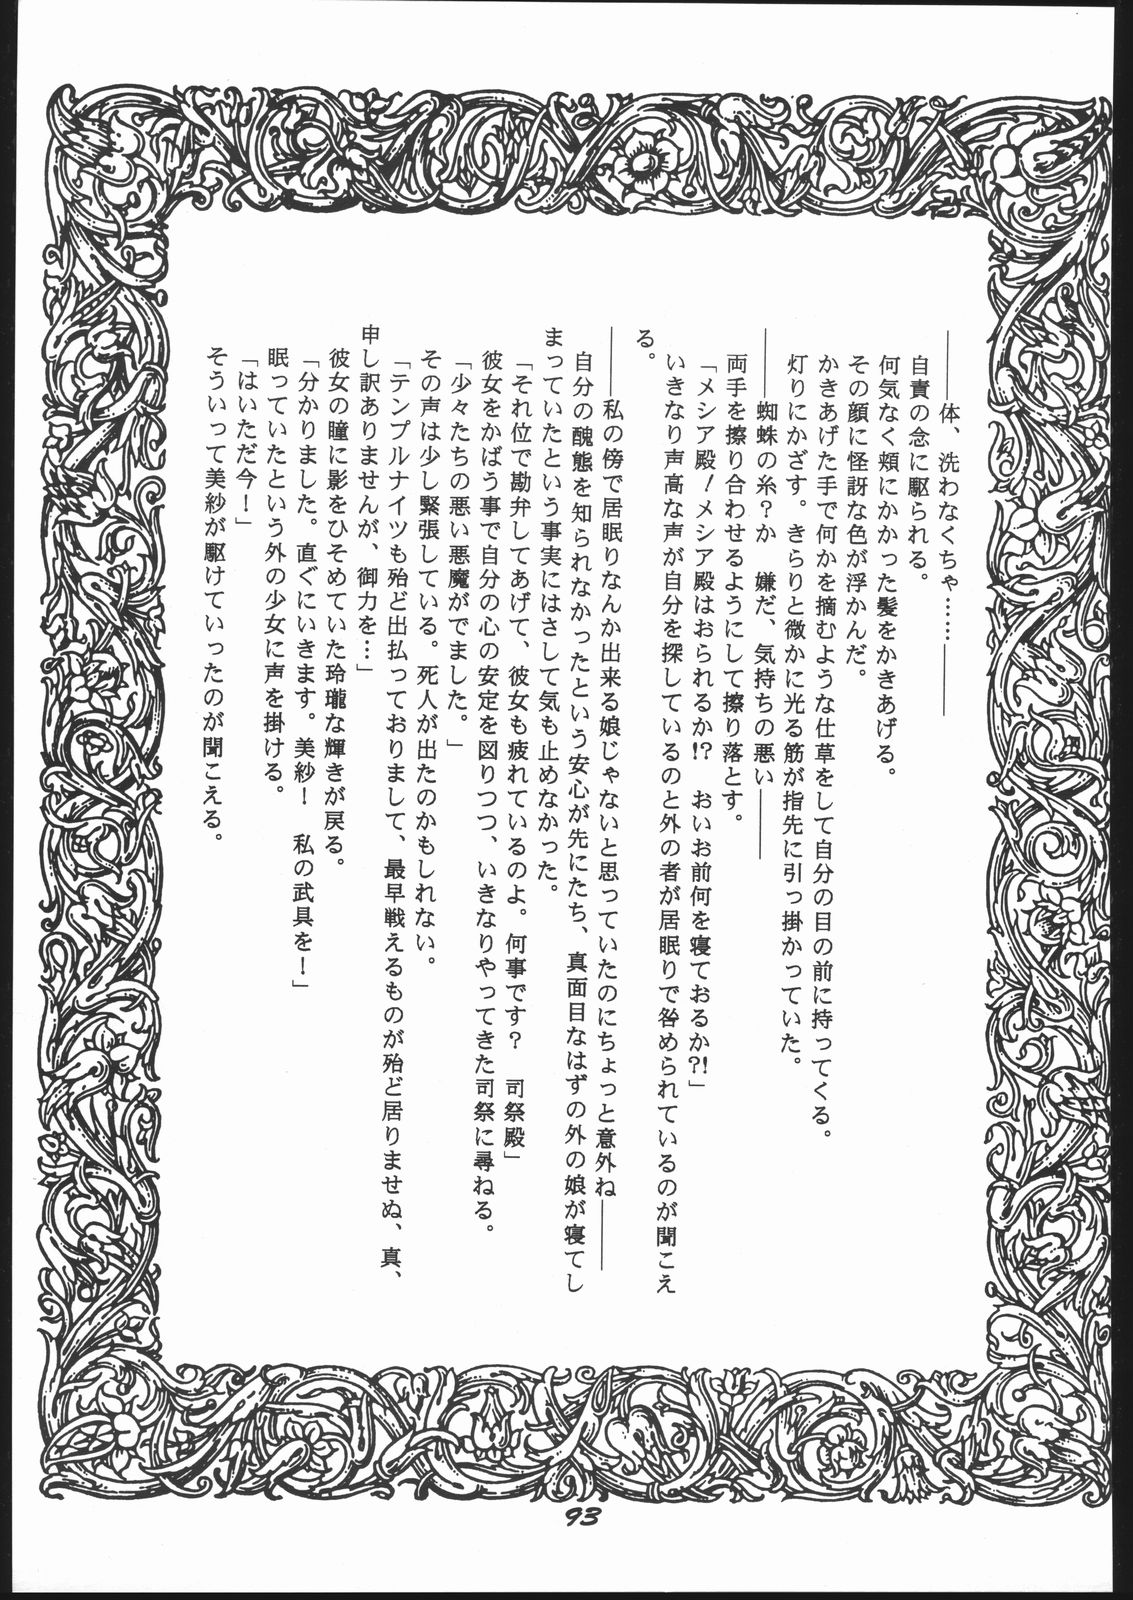 ――体、洗わなくちゃ……――
自責の念に駆られる。
何気なく頬にかかった髪をかきあげる。
その顔に怪訝な色が浮かんだ。
かきあげた手で何かを摘むような仕草をして自分の目の前に持ってくる。
灯りにかざす。きらりと微かに光る筋が指先に引っ掛かっていた。
――蜘蛛の糸？か　嫌だ、気持ちの悪い――
両手を擦り合わせるようにして擦り落とす。
「メシア殿！メシア殿はおられるか!?　おいお前何を寝ておるか?!」
いきなり声高な声が自分を探しているのと外の者が居眠りで咎められているのが聞こえ
る。
――私の傍で居眠りなんか出来る娘じゃないと思っていたのにちょっと意外ね――
自分の醜態を知られなかったという安心が先にたち、真面目なはずの外の娘が寝てし
まっていたという事実にはさして気も止めなかった。
「それ位で勘弁してあげて、彼女も疲れているのよ。何事です？　司祭殿」
彼女をかばう事で自分の心の安定を図りつつ、いきなりやってきた司祭に尋ねる。
「少々たちの悪い悪魔がでました。」
その声は少し緊張している。死人が出たのかもしれない。
「テンプルナイツも殆ど出払っておりまして、最早戦えるものが殆ど居りませぬ、真、
申し訳ありませんが、御力を…」
彼女の瞳に影をひそめていた玲瓏な輝きが戻る。
「分かりました。直ぐにいきます。美紗！　私の武具を！」
眠っていたという外の少女に声を掛ける。
「はいただ今！」
そういって美紗が駆けていったのが聞こえる。
93